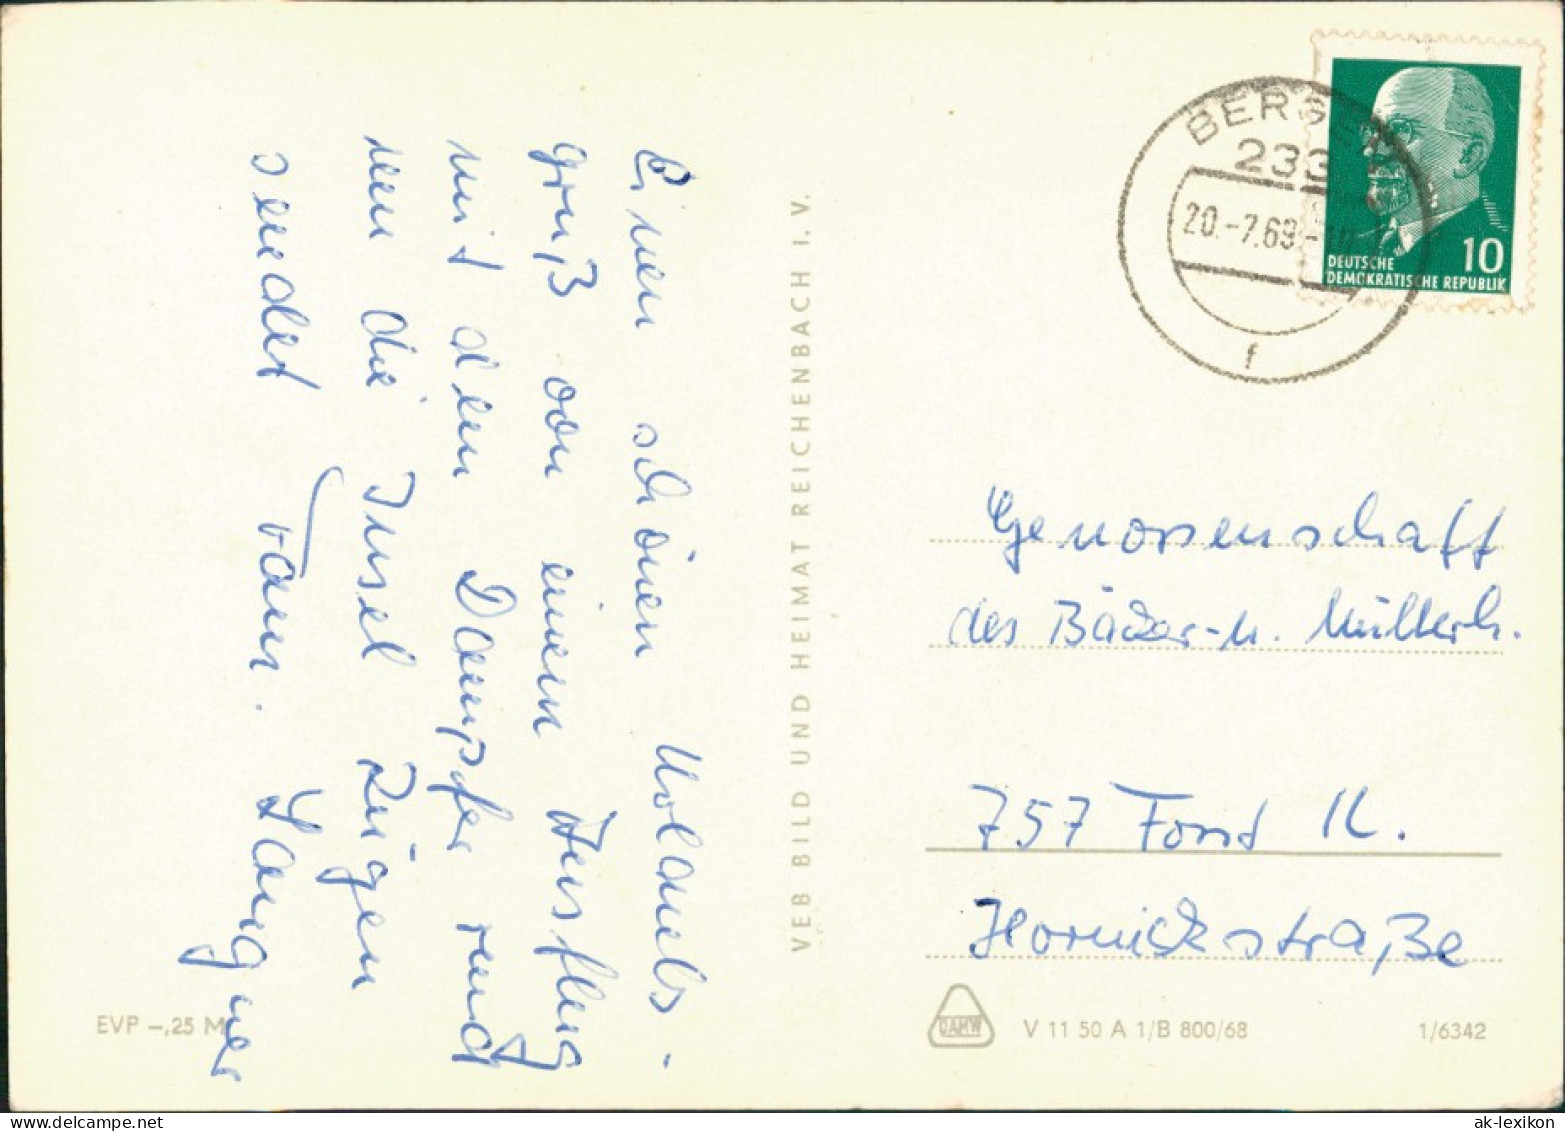 Einen schönen Urlaubs-
gruß von einem Ausflug
mit dem Dampfer rund
um die Insel Rügen
sendet Fam. Langner
VEB BILD UND HEIMAT REICHENBACH I. V.
BERGEN
233
20.-7.69-
f
10
DEUTSCHE
DEMOKRATISCHE REPUBLIK
Genossenschaft
des Bäcker-u. Müllerh.
757 Forst /L.
Hornickstraße
EVP -,25 M
V 11 50 A 1/B 800/68
1/6342
ak-lexikon